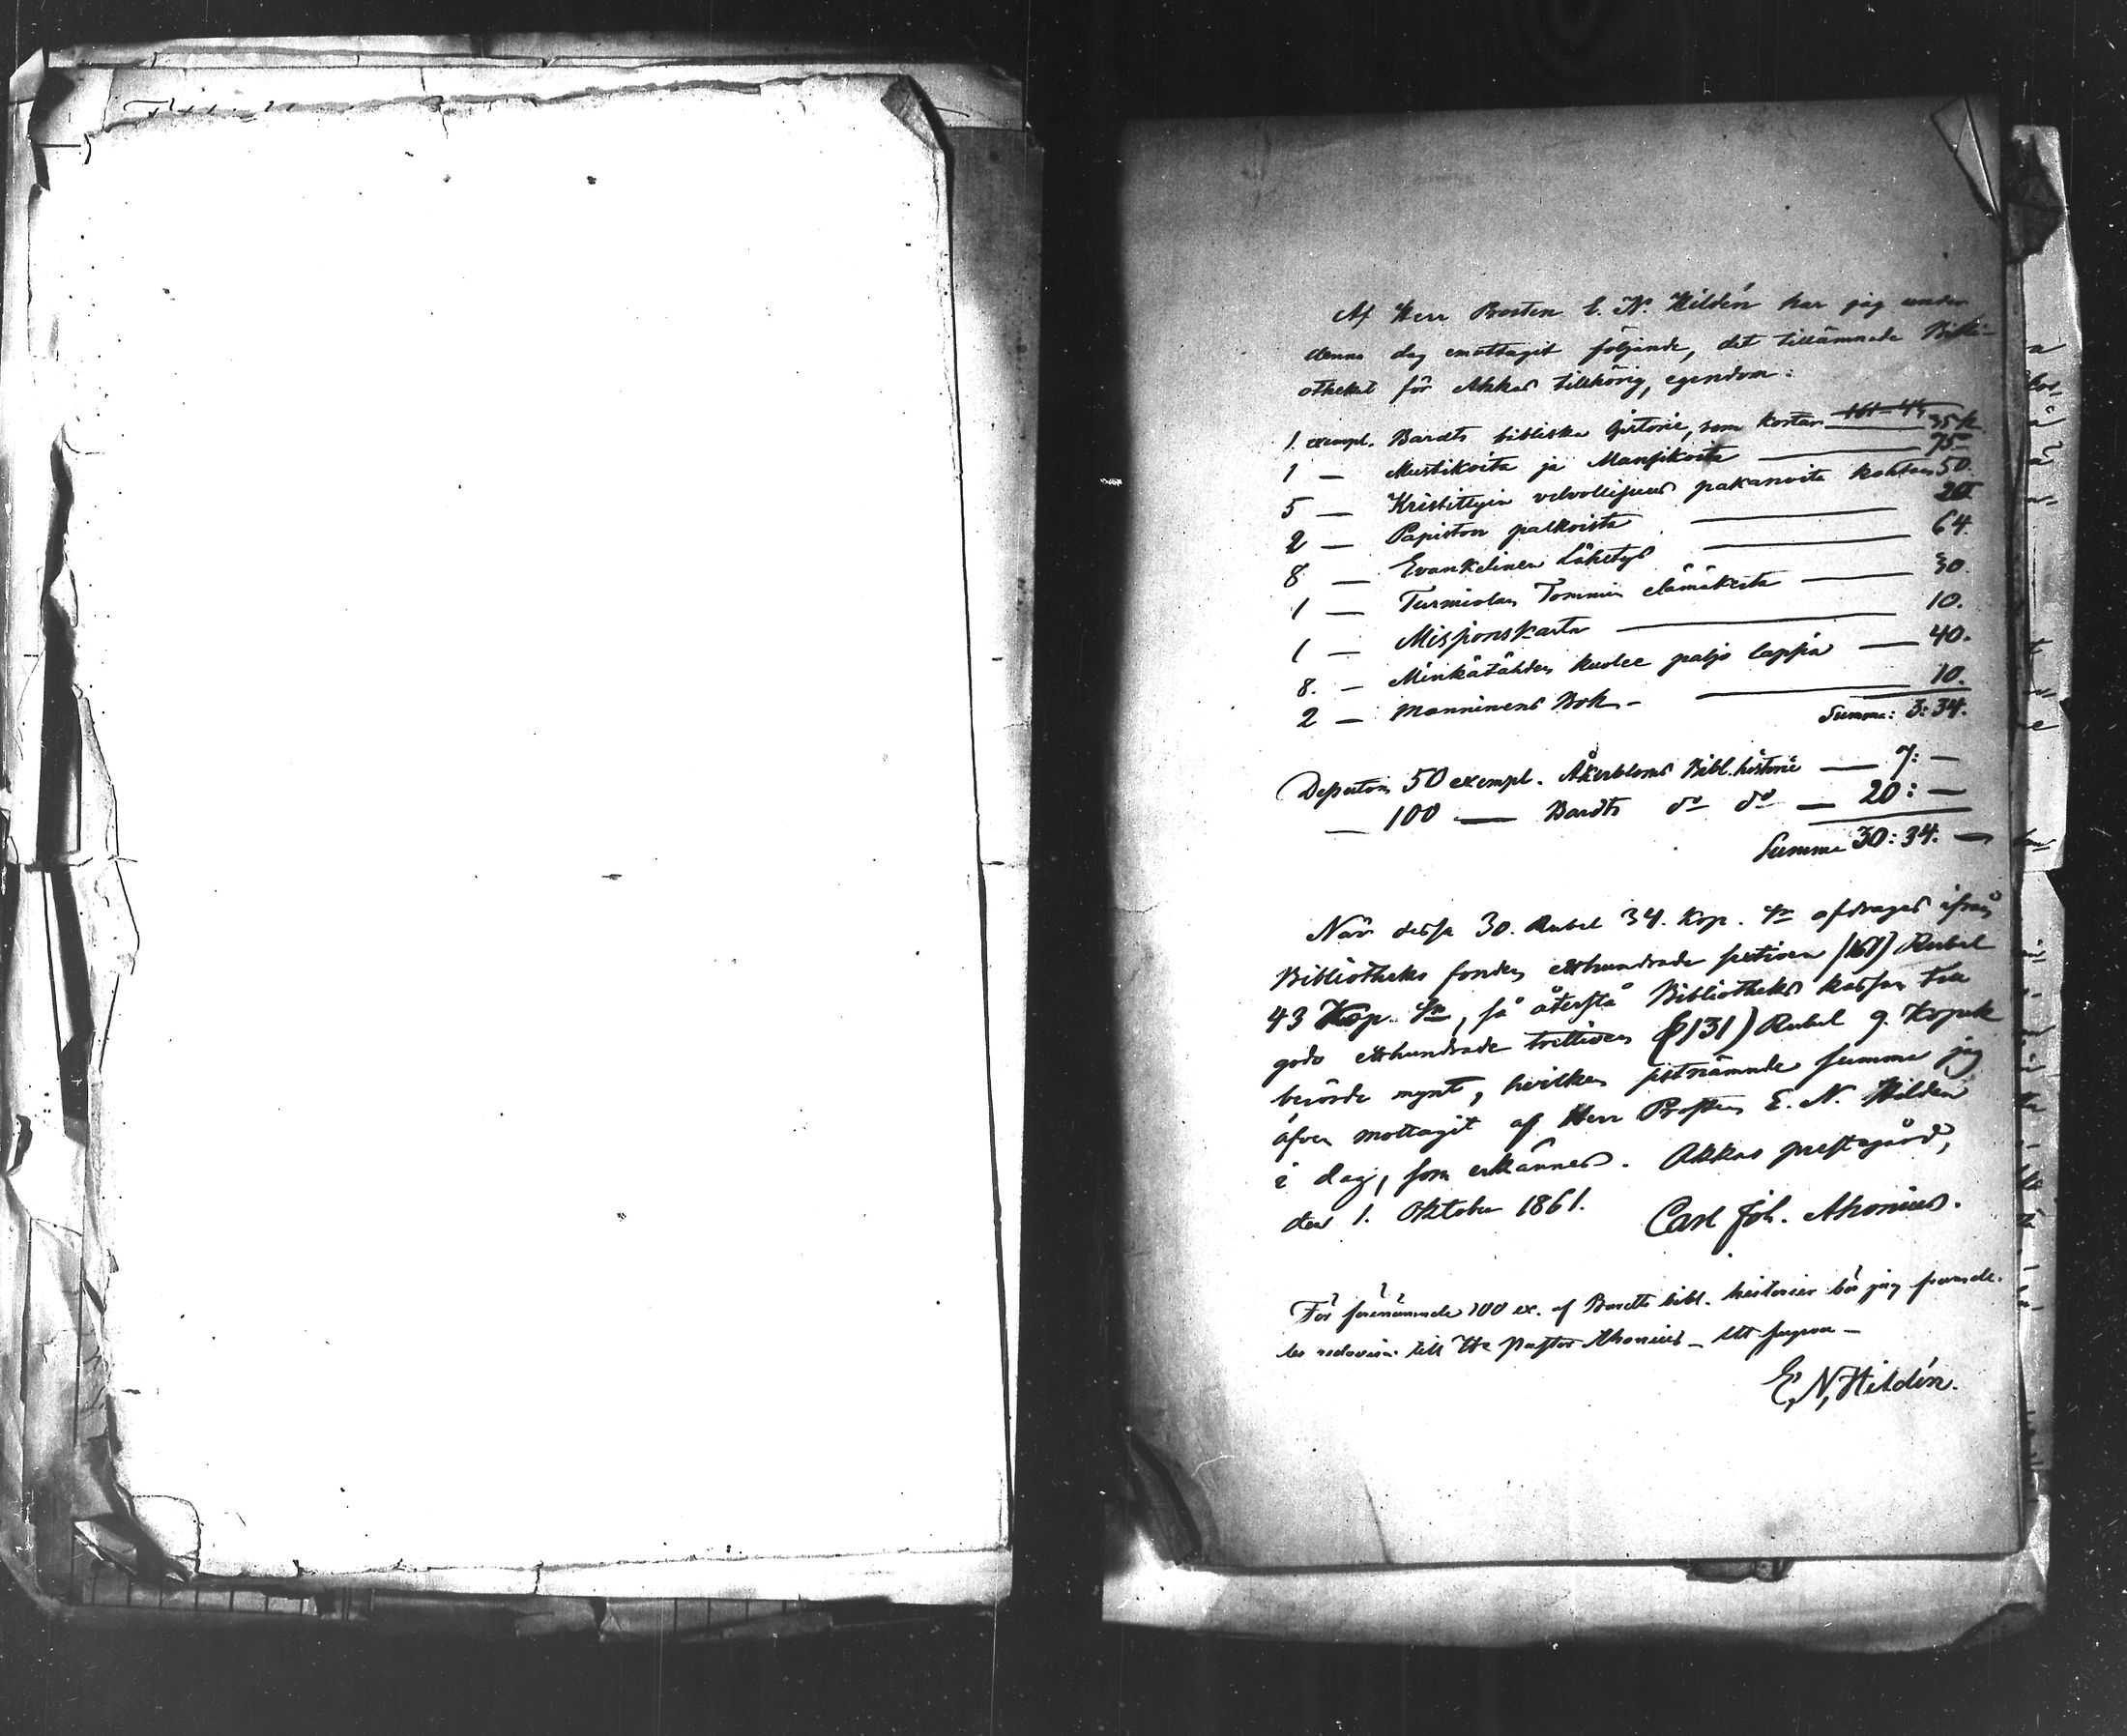 Af Herr Prosten E. N. Hildén har jag under
denna dag emottagit följande, det tillämnade Bibli-
otheket för Akkas tillhörig, egendom:
1 exempl. Bardts bibliska historie, som kostar 35 k
1 — Mustikoita ja Mansikoita — 75
5 — Kristittyin velvollisuus pakanoita kohtaan 50.
2 — Papiston palkoista — 20
8 — Evankelinen Lähetys — 64.
1 — Turmiolan Tommin elämäkerta — 30
1 — Missionskarta — 10.
8. — Minkätähden kuolee paljo lapsia — 40.
2 — Manninens Bok — 10.
Summa: 3:34.
Dessutom 50 exempl. Åkerbloms Bibl. historie — 7: —
— 100 — Bardts do do — 20: —
Summa 30:34. —
När dessa 30. Rubel 34. Kop. Sr afdrages ifrån
Bibliotheks fonden etthundrade sextioen (161) Rubel
43 Kop. Sr, så återstå Bibliotheks kassan till
godo etthundrade trettioen (131) Rubel 9. Kopek
berörde mynt, hvilken sistnämnde summa jag
äfven mottagit af Herr Prosten E. N. Hildén
i dag, som erkännes. Akkas prestgård,
den 1. Oktober 1861. Carl Joh. Ahonius.
För förenämnde 100 ex. af Bardts bibl. historier bör jag framde-
les redovisa till Hr Pastor Ahonius —
E. N. Hildén.